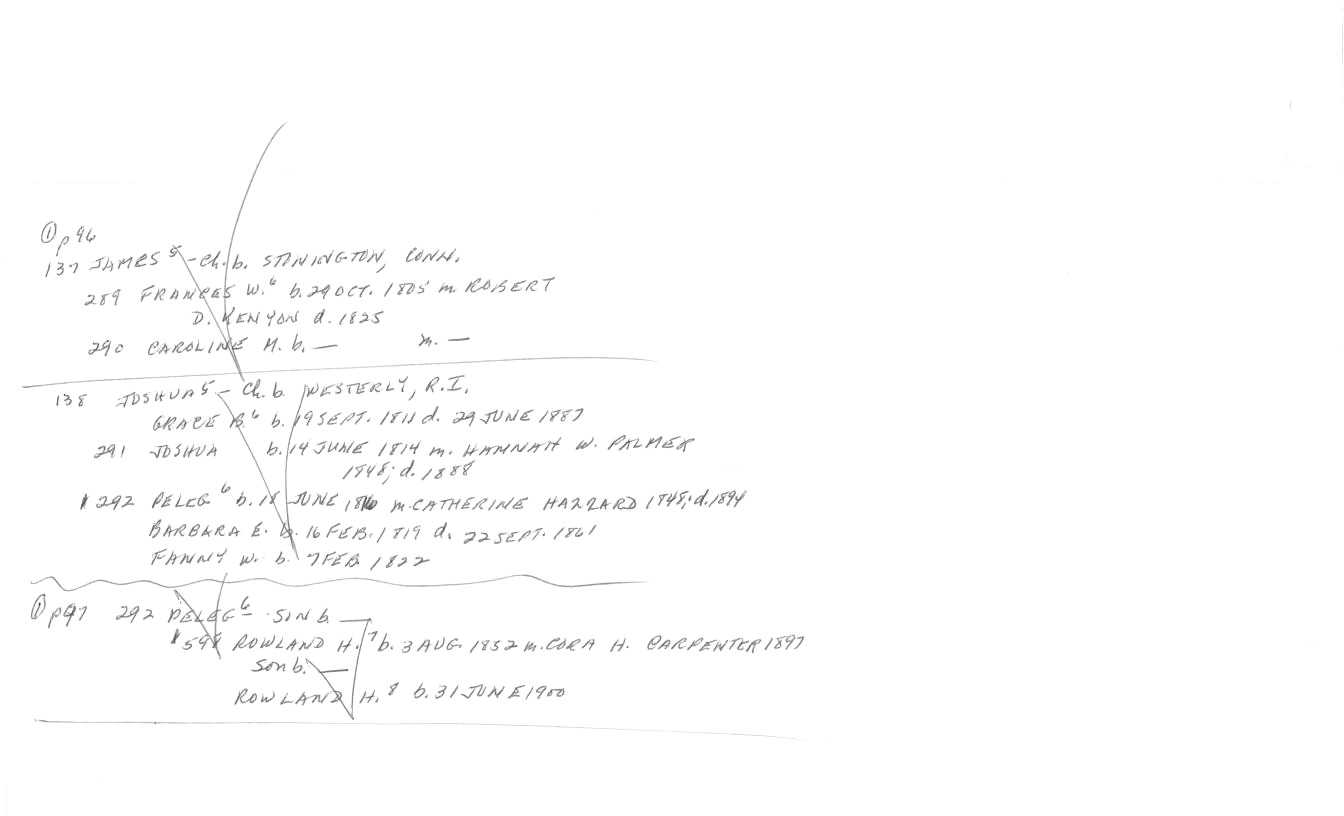 ① p 96
137 JAMES⁵ - ch. b. STONINGTON, CONN.
289 FRANCES W.⁶ b. 29 OCT. 1805 m. ROBERT
D. KENYON d. 1825
290 CAROLINE M. b. — m. —
138 JOSHUA⁵ - Ch. b. WESTERLY, R.I.
GRACE B.⁶ b. 19 SEPT. 1811 d. 29 JUNE 1887
291 JOSHUA b. 14 JUNE 1814 m. HANNAH W. PALMER
1848; d. 1888
292 PELEG⁶ b. 18 JUNE 1816 m. CATHERINE HAZZARD 1848; d. 1894
BARBARA E. b. 16 FEB. 1819 d. 22 SEPT. 1861
FANNY W. b. 7 FEB 1822
① p 97 292 PELEG⁶ - SON b. —
598 ROWLAND H.⁷ b. 3 AUG. 1852 m. CORA H. CARPENTER 1897
Son b. —
ROWLAND H.⁸ b. 31 JUNE 1900